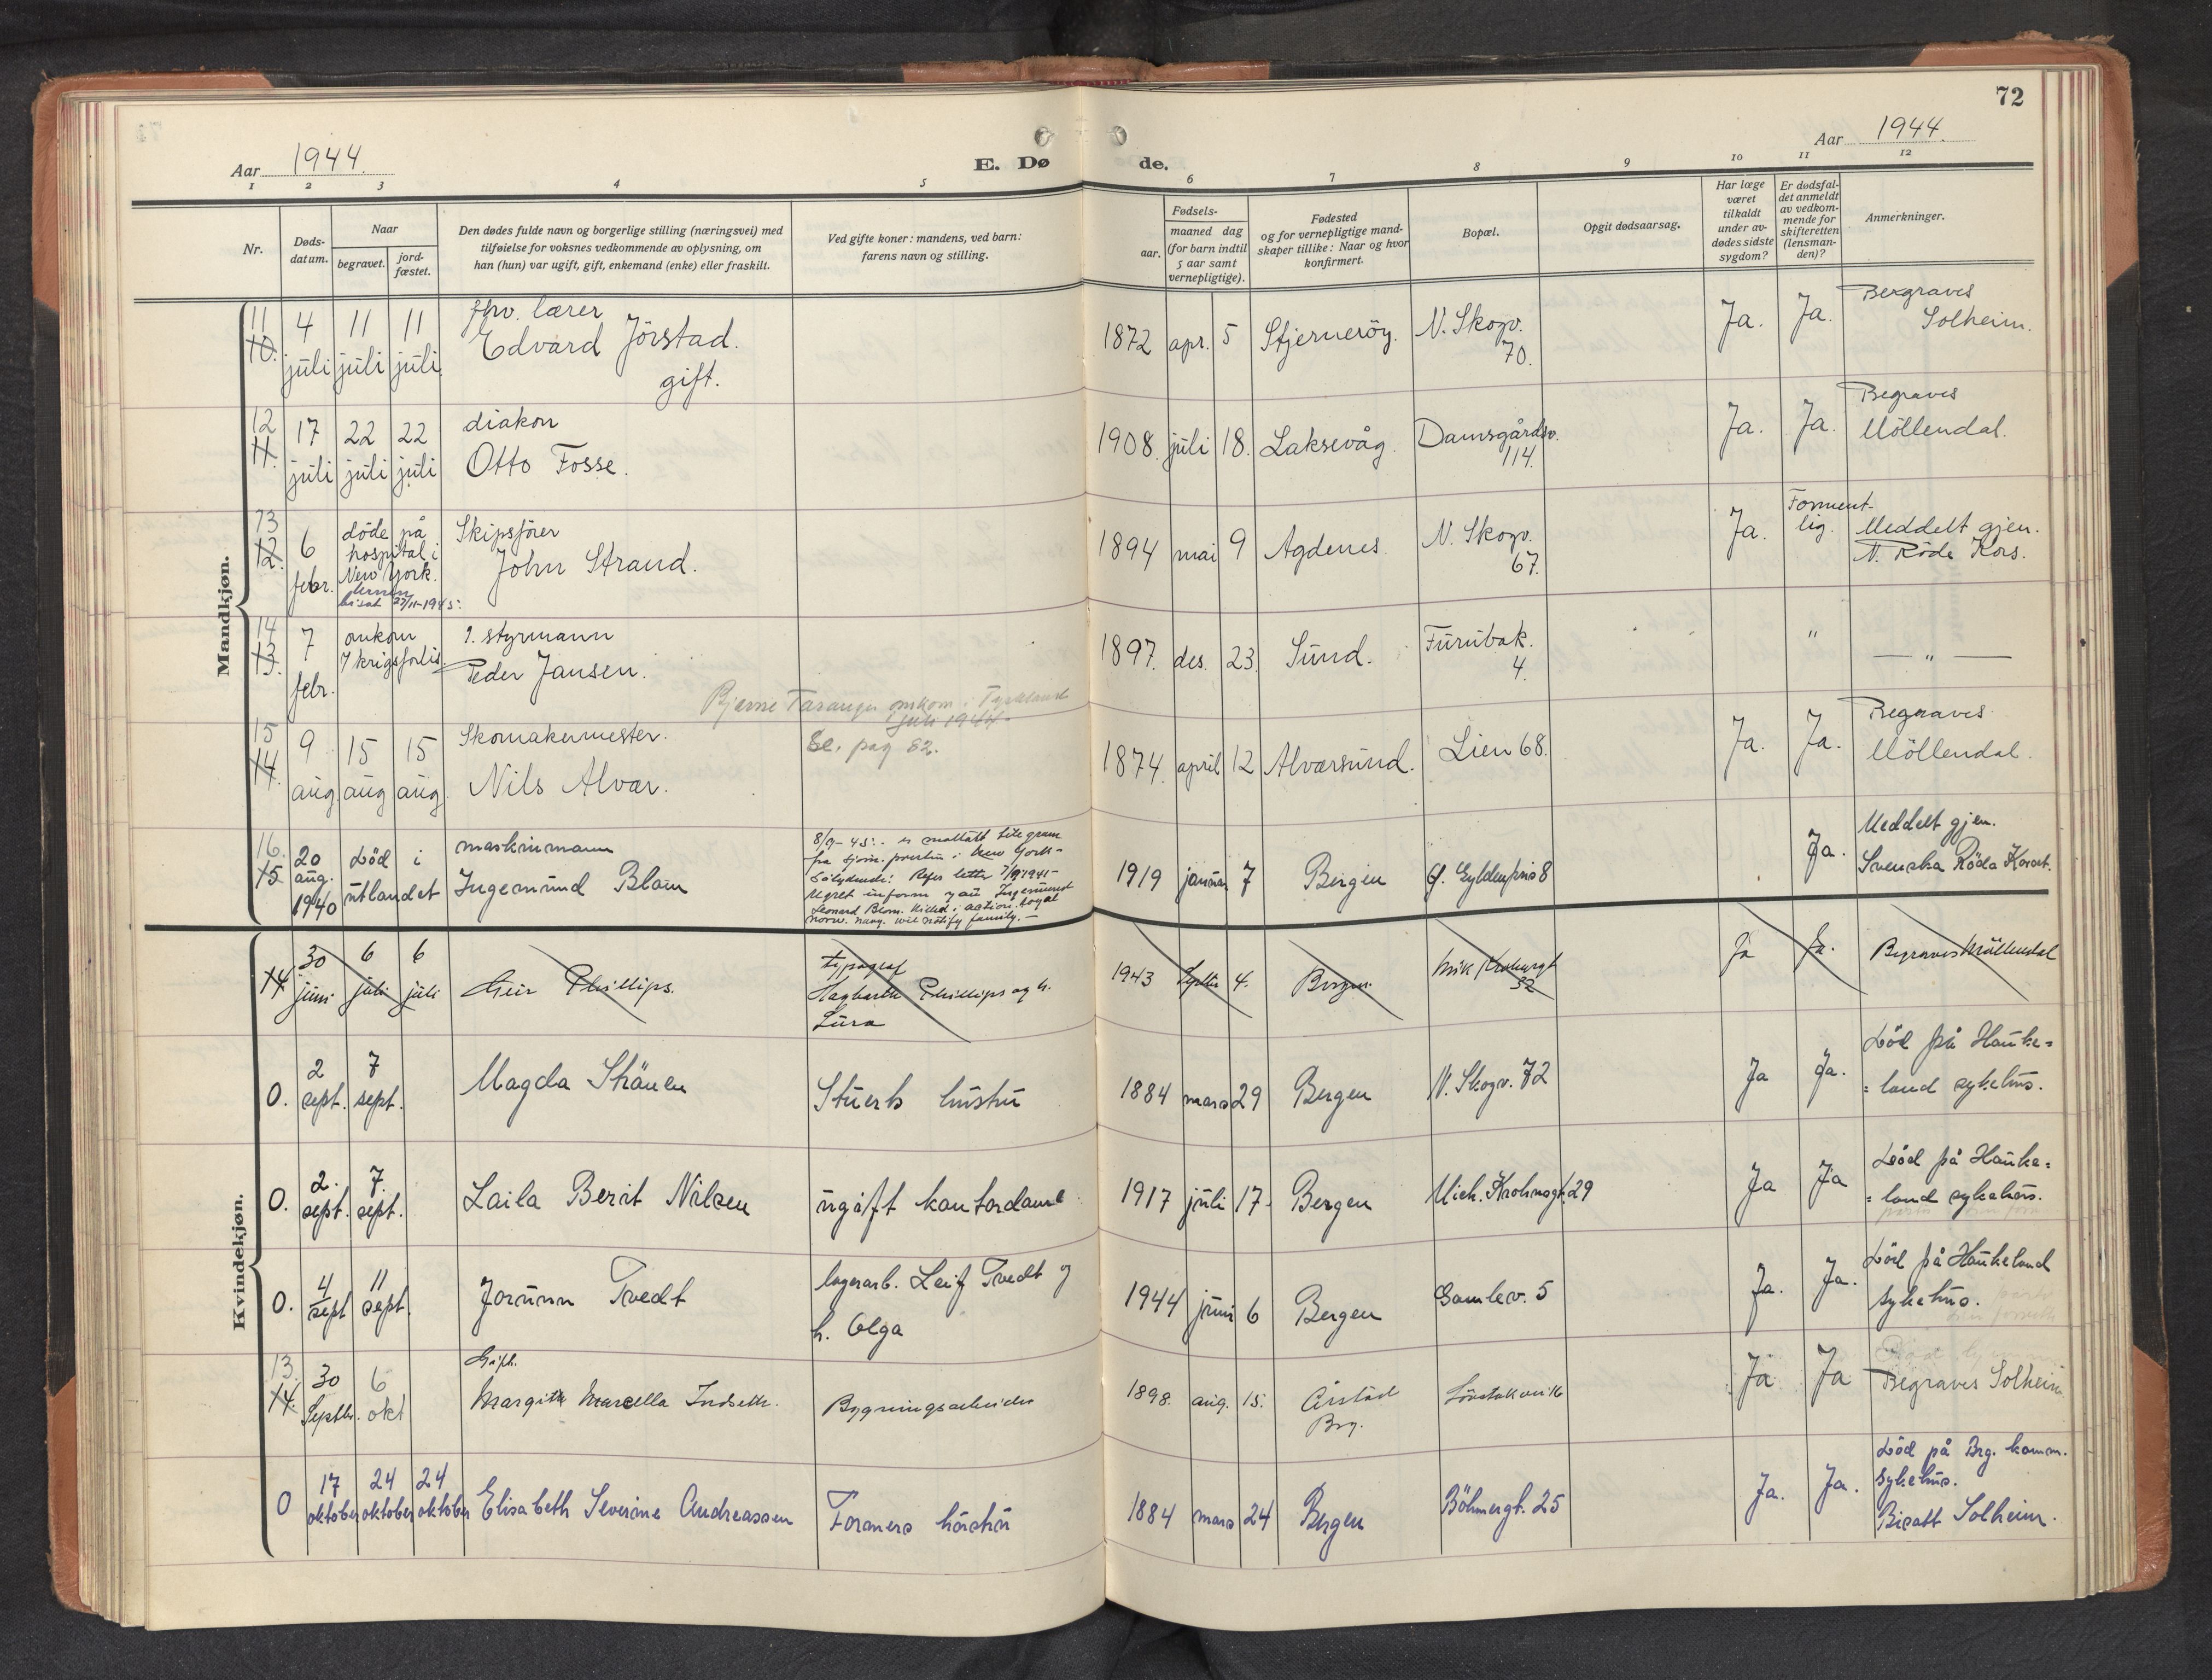 72
Aar 1944.
E. Døde.
Aar 1944.
1 2 3 4 5 6 7 8 9 10 11 12
Nr.
Døds-
datum.
Naar
begravet.
jord-
fæstet.
Den dødes fulde navn og borgerlige stilling (næringsvei) med
tilføielse for voksnes vedkommende av oplysning, om
han (hun) var ugift, gift, enkemand (enke) eller fraskilt.
Ved gifte koner: mandens, ved barn:
farens navn og stilling.
Fødsels-
aar.
maaned dag
(for barn indtil
5 aar samt
vernepligtige).
Fødested
og for vernepligtige mand-
skaper tillike: Naar og hvor
konfirmert.
Bopæl.
Opgit dødsaarsag.
Har læge
været
tilkaldt
under av-
dødes sidste
sygdom?
Er dødsfal-
det anmeldt
av vedkom-
mende for
skifteretten
(lensman-
den)?
Anmerkninger.
Mandkjøn.
11 10. 4 juli 11 juli 11 juli
fhv. lærer
Edvard Jörstad.
gift.
1872 apr. 5 Stjerneröy. N. Skogv. 70. Ja. Ja.
Begraves
Solheim.
12 11. 17 juli 22 juli 22 juli
diakon
Otto Fosse.
1908. juli 18. Laksevåg. Damsgårdsv. 114. Ja. Ja.
Begraves
Möllendal.
13 12. 6 febr.
döde på
hospital i
New York.
bisat 27/11-1945.
Skipsförer
John Strand.
1894 mai 9 Agdenes. N. Skogv. 67. Ja. Forment-
lig.
Meddelt gjen.
N. Röde Kors.
14 13. 7 febr.
omkom
v/krigsforlis.
1. styrmann
Peder Jansen.
1897. des. 23. Sund. Furubak. 4. " — " —
Bjarne Taranger omkom i Tyskland
juli 1944.
Se. pag 82.
15 14. 9 aug. 15 aug 15 aug.
Skomakermester.
Nils Alvær.
1874. april 12 Alversund. Lien 68. Ja. Ja.
Begraves
Möllendal.
16. 15 20 aug. 1940
död i
utlandet
maskinmann
Ingemund Blom
8/9-45: er mottatt telegram
fra sjöm. presten i New York-
Sålydende: Refer letter 7/9 1945-
Regret inform you Ingemund
Leonard Blom. killed i action. royal
norw. navy. will notify family. —
1919 januar 7 Bergen G. Gyldenpris 8 Ja.
Meddelt gjen.
Svenska Röda Korset.
Kvindekjøn.
14 30 juni 6 juli 6 juli
Geir Phillips.
typograf
Hagbarth Phillips og h.
Lura
1943 Septbr 4. Bergen. Mik Krohnsgt 32 Ja Ja.
Begraves Möllendal
0. 2 sept. 7 sept.
Magda Skånen
Stuerts hustru
1884 mars 29 Bergen N. Skogv. 72 Ja Ja.
Död på Hauke=
=land sykehus.
0. 2. sept. 7. sept.
Laila Berit Nilsen
ugift kontordame
1917 juli 17. Bergen Mich. Krohnsgt. 29 Ja Ja
Död på Hauke=
=land sykehus.
0. 4 sept 11 sept.
Jorunn Tvedt
lagerarb. Leif Tvedt og
h. Olga
1944 juni 6 Bergen Gamlev. 5 Ja. Ja.
Död på Haukeland
sykehus.
13. 14. 30 Septbr. 6 okt
Gift.
Margith Marcella Indseth.
Bygningsarbeider
1898. aug. 15. Årstad
Brg.
Lövstakveien 16 Ja Ja
Begraves Solheim.
0 17 oktober 24 oktober 24 oktober
Elisabeth Severine Andreassen
Formers hustru
1884 mars 24 Bergen Böhmergt. 25 Ja. Ja.
Död på Brg. komm.
sykehus.
Bisatt Solheim.